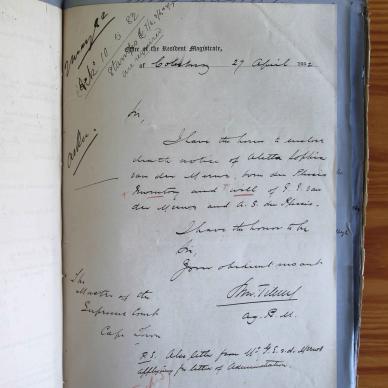 Ack'd 10 5 82
Office of the Resident Magistrate,
at Colesberg 27 April 1882
Sir,
I have the honor to enclose
death notice of Aletta Sophia
van der Merwe, born du Plessis
Inventory and will of
der Merwe and A. S. du Plessis.
I have the honor to be
Sir,
Your obedient servant
Actg R. M.
The
Master of the
Supreme Court
Cape Town
P.S. Also letter from Mr v. d. Merwe
applying for letter of Administration.